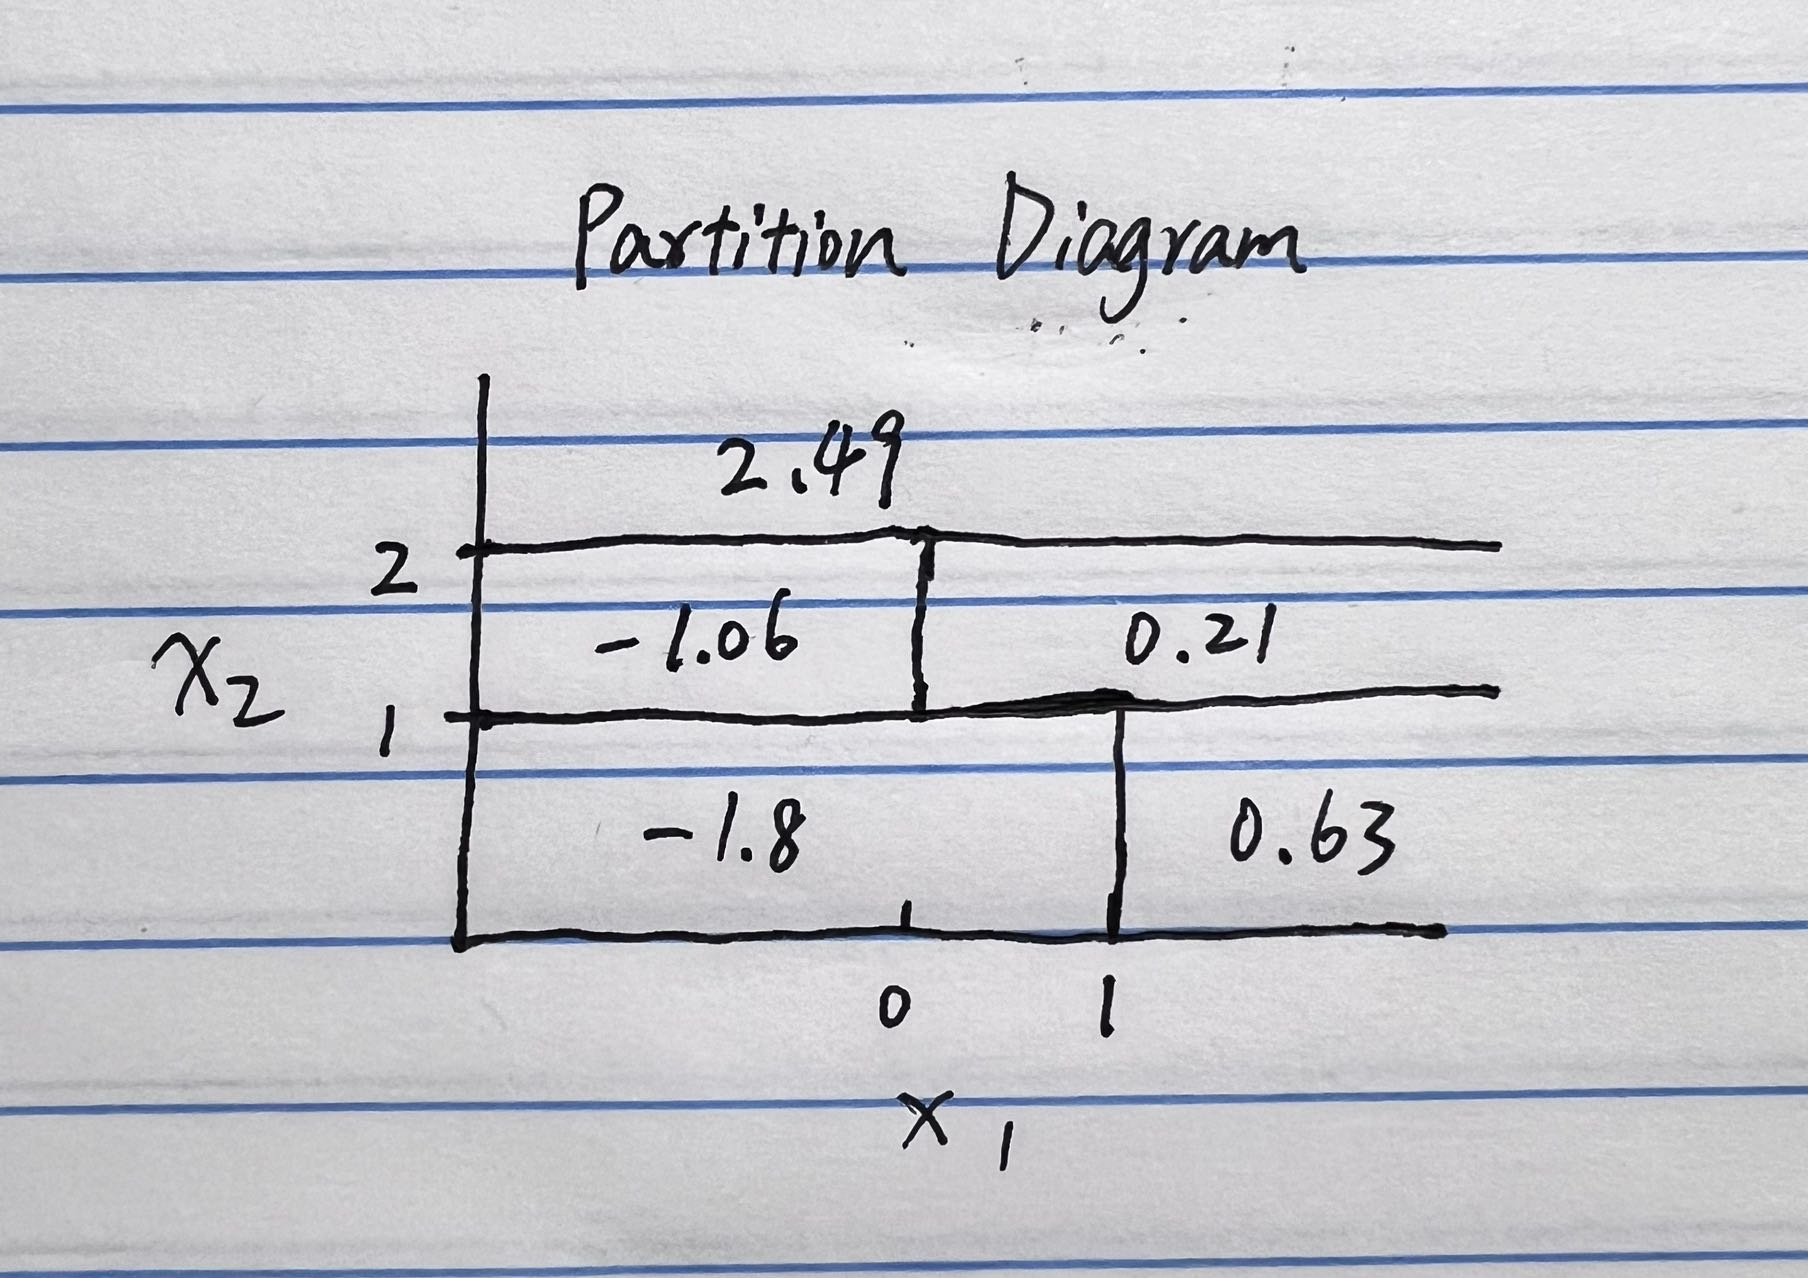 Partition Diagram
2.49
2
-1.06 0.21
x2
1
-1.8 0.63
0 1
x1